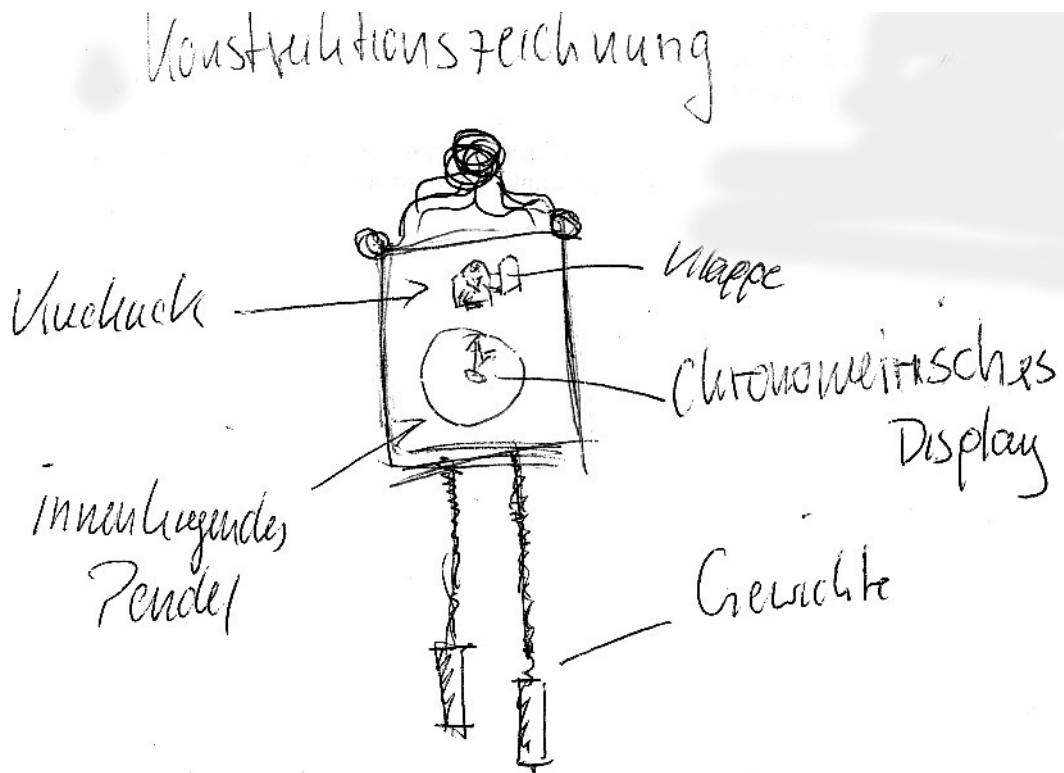 Konstruktionszeichnung
Kuckuck
Klappe
Chronometrisches
Display
innenliegendes
Pendel
Gewichte